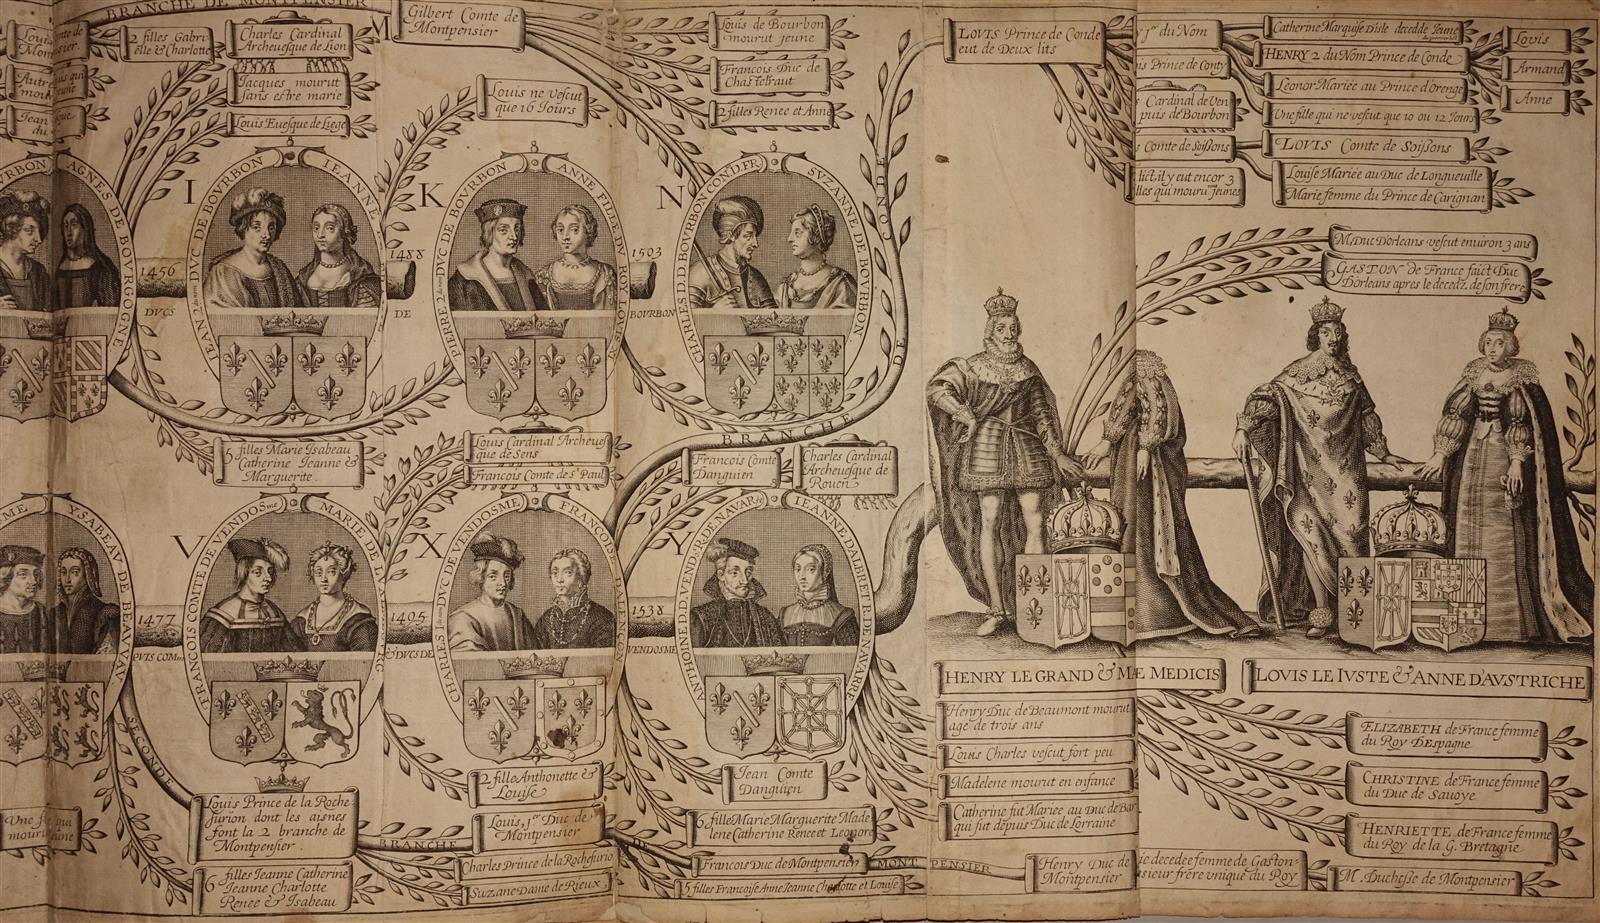 BRANCHE DE MONTPENSIER
2 filles Gabri-
elle & Charlotte
Charles Cardinal
Archeuesque de Lion
Jacques mourut
sans estre marie
Louis Euesque de Liege
M
Gilbert Comte de
Montpensier
Louis ne vescut
que 16 Iours
Louis de Bourbon
mourut jeune
François Duc de
Chastelraut
2 filles Renee et Anne
LOVIS Prince de Conde
eut de Deux lits
y jer du Nom
is Prince de Conty
Cardinal de Ven
puis de Bourbon
s Comte de Soissons
il y eut encor 3
lles qui mouru jeunes
Catherine Marquise Disle decedée Jeune
HENRY 2 du Nom Prince de Conde
Leonor Mariée au Prince d'Orenge
Vne fille qui ne vescut que 10 ou 12 Iours
LOVIS Comte de Soissons
Louise Mariée au Duc de Longueuille
Marie femme du Prince de Carignan
Louis
Armand
Anne
M. Duc Dorleans vescut enuiron 3 ans
GASTON de France faict Duc
Dorleans apres le decedz. de son frere
AGNES DE BOVRGOGNE
1456
DVCS
I
8
IEAN 2 DVC DE BOVRBON
IEANNE
1488
DE
K
8
PIERRE 2 DVC DE BOVRBON
ANNE FILLE DV ROY LOVIS XI
1503
BOVRBON
N
8
CHARLES D.D.BOVRBON CON.D.FR
SVZANNE DE BOVRBON
BRANCHE
DE
CONDE
5 filles Marie Isabeau
Catherine Ieanne &
Marguerite.
Louis Cardinal Archeues-
que de Sens
Francois Comte de St Paul
Francois Comte
Danguien
Charles Cardinal
Archeuesque de
Rouen
YSABEAV DE BEAVVAV
1477
PVIS COM
V
FRANCOIS COMTE DE VENDOSme
MARIE DE LVXE
1495
& DVCS DE
X
CHARLES DVC DE VENDOSME
FRANÇOISE D'ALENÇON
1538
VENDOSME
Y
ANTHOINE D.D.VEND.R.DE NAVARre
IEANNE D'ALBRET R.DE NAVARRE
HENRY LE GRAND & M E MEDICIS
LOVIS LE IVSTE & ANNE D'AVSTRICHE
SECONDE
BRANCHE
DE
MONTPENSIER
Louis Prince de la Roche-
surion dont les aisnes
font la 2 branche de
Montpensier.
6 filles Ieanne Catherine
Ieanne Charlotte
Renee & Isabeau
2 fille Anthonette &
Louise
Louis, 1er Duc de
Montpensier
Charles Prince de la Rochesurio
Suzane Dame de Rieux
Jean Comte
Danguien
6 fille Marie Marguerite Made
lene Catherine Renee et Leonore
Francois Duc de Montpensier
5 filles Francoise Anne Ieanne Charlotte et Louise
Henry Duc de Beaumont mourut
age de trois ans
Louis Charles vescut fort peu
Madelene mourut en enfance
Catherine fut Mariée au Duc de Bar
qui fut depuis Duc de Lorraine
Henry Duc de
Montpensier
ie decedee femme de Gaston-
sieur frère vnique du Roy
ELIZABETH de France femme
du Roy DEspagne
CHRISTINE de France femme
du Duc de Sauoye
HENRIETTE de France femme
du Roy de la G. Bretagne
M. Duchesse de Montpensier